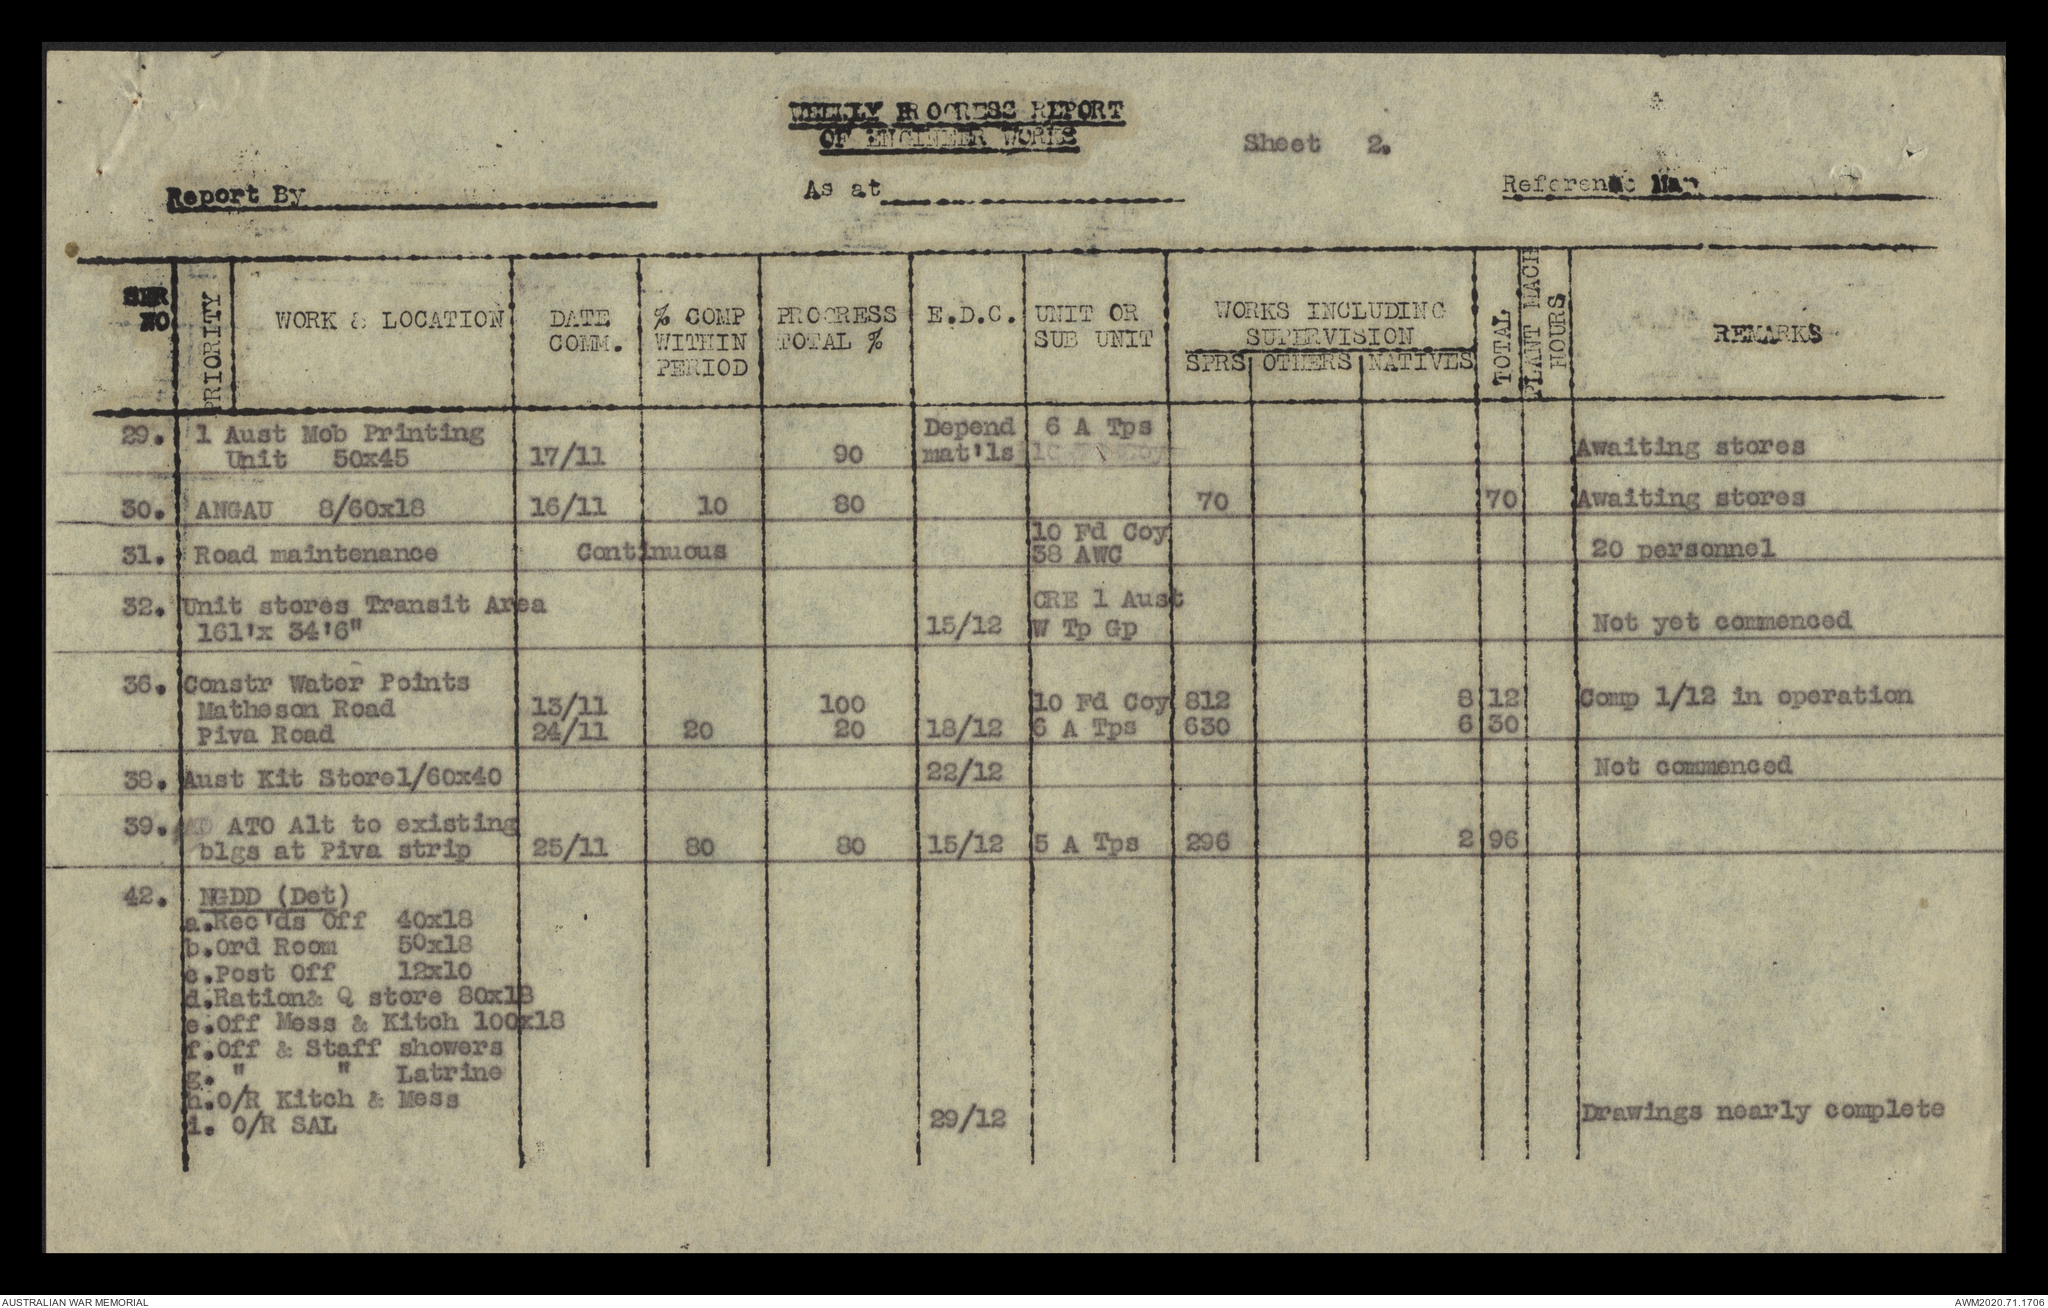 WEEKLY PROGRESS REPORT
OF ENGINEER WORKS
Sheet 2.
Report By
As at
Reference Map
SER NO
PRIORITY
WORK & LOCATION
DATE COMM.
% COMP WITHIN PERIOD
PROGRESS TOTAL %
E.D.C.
UNIT OR SUB UNIT
WORKS INCLUDING SUPERVISION
SPRS OTHERS NATIVES
TOTAL
PLANT MACH HOURS
REMARKS
29. 1 Aust Mob Printing Depend 6 A Tps
Unit 50x45 17/11 90 mat'ls Awaiting stores
30. ANGAU 8/60x18 16/11 10 80 70 70 Awaiting stores
10 Fd Coy
31. Road maintenance Continuous 38 AWC 20 personnel
32. Unit stores Transit Area CRE 1 Aust
161'x 34'6" 15/12 W Tp Gp Not yet commenced
36. Constr Water Points
Matheson Road 13/11 100 10 Fd Coy 812 8 12 Comp 1/12 in operation
Piva Road 24/11 20 20 18/12 6 A Tps 630 6 30
38. Aust Kit Store1/60x40 22/12 Not commenced
39. ATO Alt to existing
blgs at Piva strip 25/11 80 80 15/12 5 A Tps 296 2 96
42. NGDD (Det)
a.Rec'ds Off 40x18
b.Ord Room 50x18
c.Post Off 12x10
d.Ration& Q store 80x18
e.Off Mess & Kitch 100x18
f.Off & Staff showers
g. " " Latrine
h.O/R Kitch & Mess
i. O/R SAL 29/12 Drawings nearly complete
AUSTRALIAN WAR MEMORIAL
AWM2020.71.1706